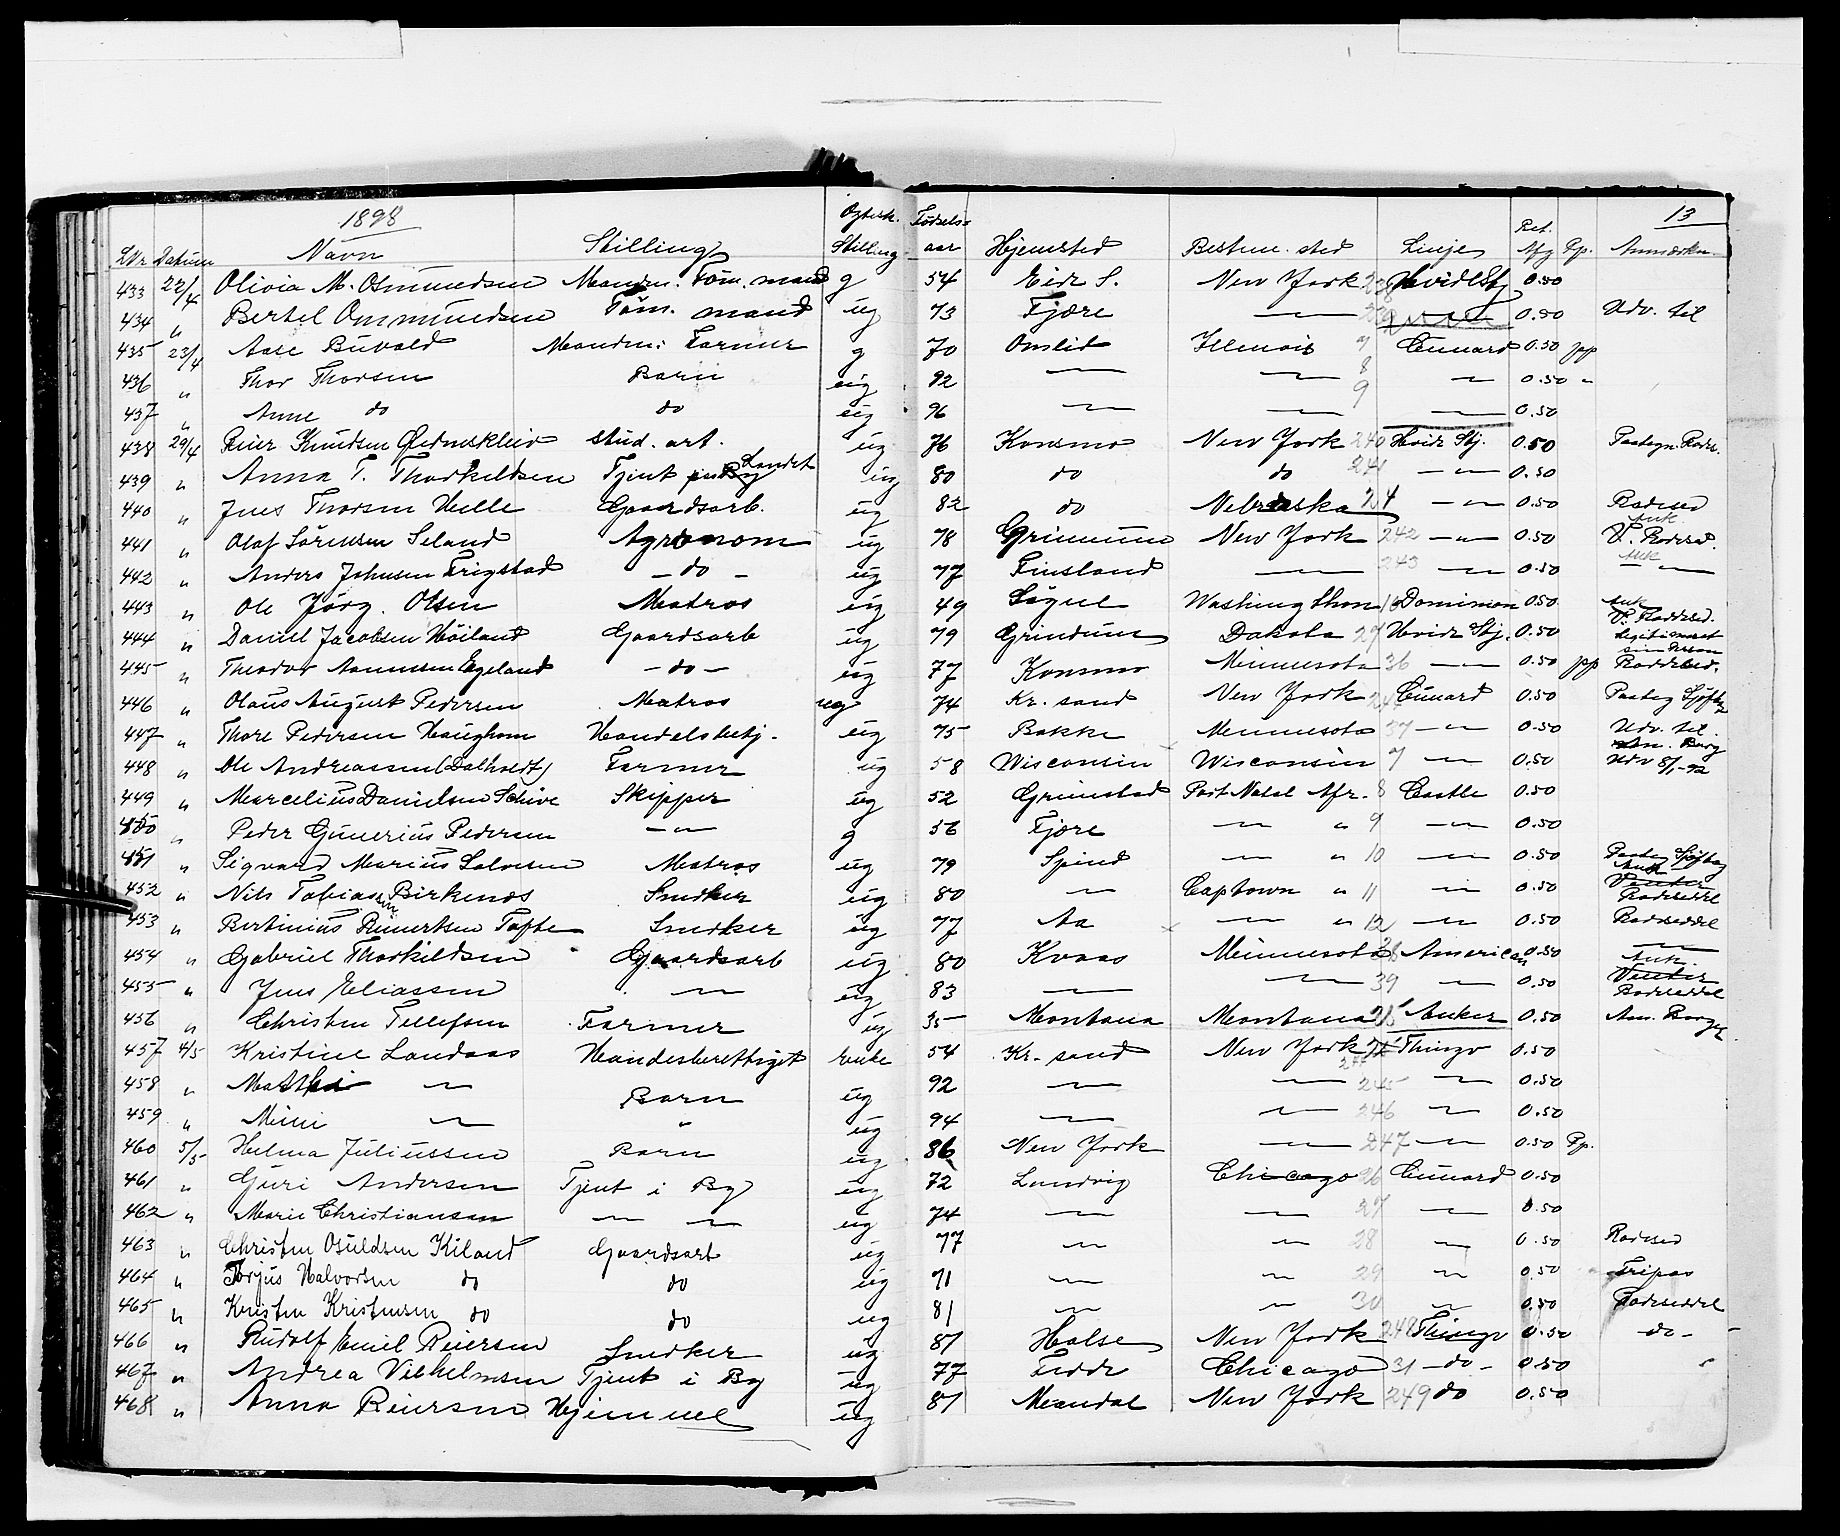 1898 Ogtesk. Fødsels= Bet. 13
LNr Datum Navn Stilling Stilling aar Hjemsted Bestem. sted Linje Afg Pp. Anmærkn.
433 22/4 Olivia M. Osmundsen Manden: Töm. mand g 54 Eide S. New York 238 Hvidl Stj 0.50
434 " Bertel Ommundsen Töm. mand ug 73 Fjære — 0.50 Udv. til
435 23/4 Aase Buvold Manden: Farmer g 70 Omlid Illenois 7 Cunard 0.50 pp
436 " Thor Thorsen Barn ug 92 — — 8 — 0.50 "
437 " Anne do do ug 96 — — 9 — 0.50
438 29/4 Reier Knudsen Ødneskleiv stud. art. ug 76 Konsmo New York 240 Hvide Stj. 0.50 Paategn. Rodes.
439 " Anna T. Thorkildsen Tjent paa Landet ug 80 do do 241 — " — 0.50
440 " Jens Thorsen Helle Gaardsarb. ug 82 do Nebraska 24 — " — 0.50 Rodesed
441 " Olof Sörensen Seland Agronom ug 78 Grimum New York 242 — " — 0.50 Ank V. Rodesed.
442 " Anders Johnsen Frigstad — do — ug 77 Finsland — 243 — " — 0.50 Ank —
443 " Ole Jörg. Olsen Matros ug 49 Søgne Washingthon 16 Dominion 0.50 Ank V. Roddesed.
444 " Daniel Jacobsen Höiland Gaardsarb ug 79 Grindum Dakota 27 Hvide Stj. 0.50 Legitimeret sin Person
445 " Theodor Aanensen Egeland — do — ug 77 Konsmo Minnesota 36 — " — 0.50 pp Roddesed.
446 " Olaus August Pedersen Matros ug 74 Kr. sand New York Cunard 0.50 Paateg Sjöftog
447 " Thore Pedersen Haughom Handelsbetj. ug 75 Bakke Mennesota 37 — " — 0.50 Udv. til.
448 " Ole Andreassen (Dalholdt) Farmer ug 58 Wisconsin Wisconsin 7 — " — 0.50 Am. Borg Udv 8/1-92
449 " Marcelius Danielsen Schive Skipper ug 52 Grimstad Port Natal Afr. 8 Castle 0.50
450 " Peder Gunerius Pedersen — " — g 56 Fjære — " 9 — " — 0.50
451 " Sigvard Marius Salvesen Matros ug 79 Spind — " 10 — " — 0.50 Paateg Sjöftog
452 " Nils Tobiassen Birkenes Snedker ug 80 — Captown " 11 — " — 0.50 Ank Rodeseddel
453 " Bertinius Reinertsen Tofte Snedker ug 77 Aa — " 12 — " — 0.50 Rodeseddel
454 " Gabriel Thorkildsen Gaardsarb ug 80 Kvaas Minnesota 38 American 0.50 —
455 " Jens Eliassen — " — ug 83 — — 39 — " — 0.50 Ank. Rodeseddel
456 " Christen Tellefsen Farmer ug 35 Montana Montana 215 Anker 0.50 Am. Borger
457 4/5 Kristine Landaas Handesberettiget enke 54 Kr. sand New York 244 Thingv 0.50
458 " Mathea — " — Barn ug 92 — — 245 — " — 0.50
459 " Mimi — " — " ug 94 — — 246 — " — 0.50
460 5/5 Helma Juliussen Barn ug 86 New York — 247 — " — 0.50 Pp.
461 " Guri Andersen Tjent i By ug 72 Lundvig Chicago 26 Cunard 0.50
462 " Marie Christiansen — " — — " — ug 74 — — 27 — " — 0.50
463 " Christen Osuldsen Kiland Gaardsarb ug 77 — " — — " — 28 — " — 0.50 Rodesed
464 " Torjus Halvorsen do do ug 71 — " — — " — 29 — " — 0.50 Fripas
465 " Kristen Kristensen do do ug 81 — " — — " — 30 — " — 0.50 Rodeseddel
466 " Rudolf Emil Reiersen Snedker ug 81 Halse New York 248 Thingv 0.50 — do —
467 " Andrea Vilhelmsen Tjent i By ug 77 Fedde Chicago 31 — do — 0.50
468 " Anna Reiersen Hjemmet ug 81 Mandal New York 249 do 0.50